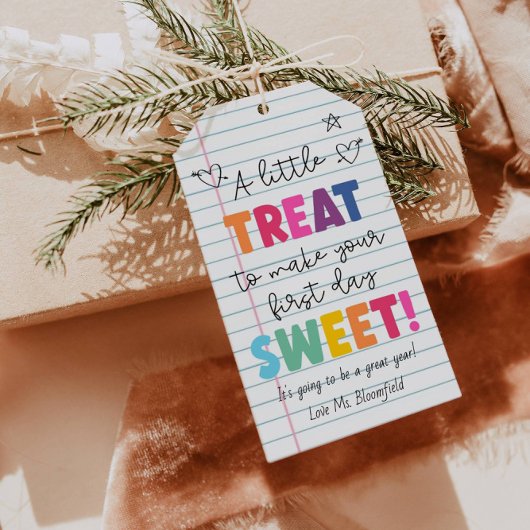 A little
TREAT
to make your
first day
SWEET!
It's going to be a great year!
Love Ms. Bloomfield